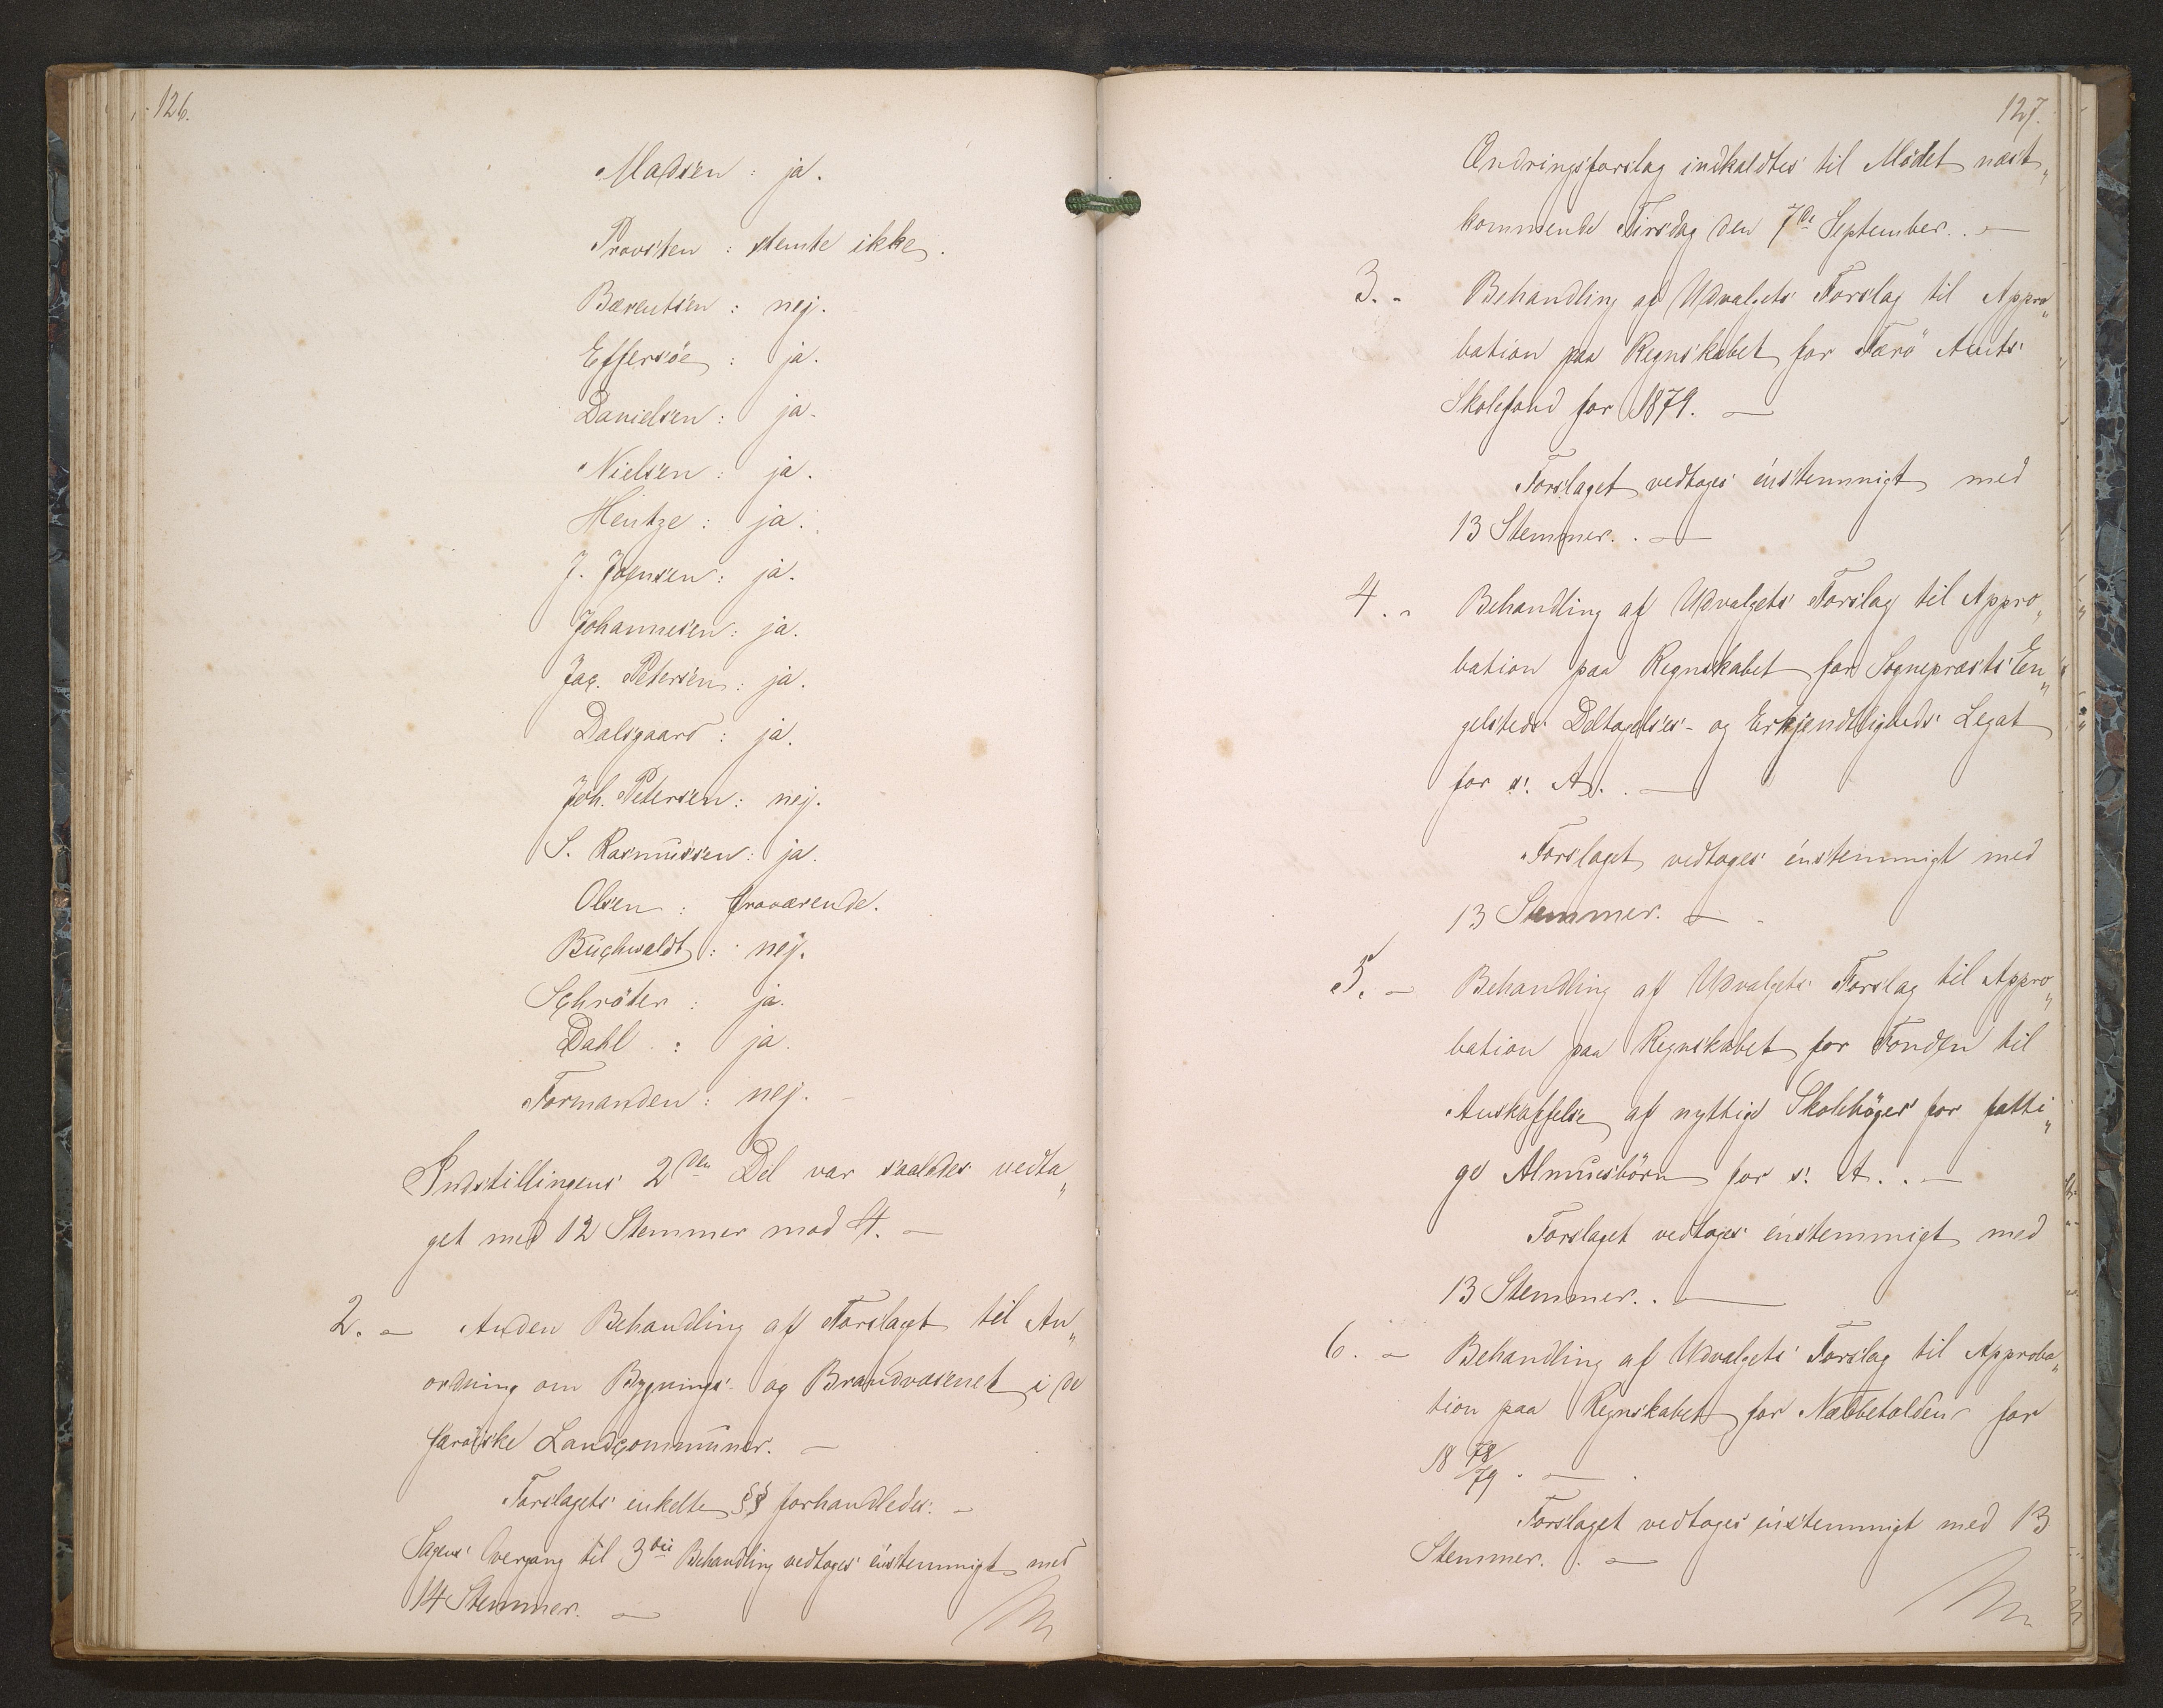 126.
Madsen : ja.
Provsten : stemte ikke.
Bærentsen : nej.
Effersöe : ja.
Danielsen : ja.
Nielsen : ja.
Hentze : ja.
J. Joensen : ja.
Johannesen : ja.
Jac. Petersen : ja.
Dalsgaard : ja.
Joh. Petersen : nej.
S. Rasmussen : ja.
Olsen : fraværende.
Buchwaldt : nej.
Schröter : ja.
Dahl : ja.
Formanden : nej. —
Indstillingens 2den Del var saaledes vedta„
get med 12 Stemmer mod 4. —
2. — Anden Behandling af Forslaget til An„
ordning om Bygnings- og Brandvæsenet i de
færöiske Landcommuner. —
Forslagets enkelte §§ forhandledes. —
Sagens Overgang til 3die Behandling vedtoges énstemmigt med
14 Stemmer. —
127.
Ændringsforslag indkaldtes til Mödet næst„
kommende Tirsdag den 7de September. . —
3. - Behandling af Udvalgets Forslag til Appro„
bation paa Regnskabet for Færö Amts
Skolefond for 1879. —
Forslaget vedtoges énstemmigt med
13 Stemmer. . —
4. - Behandling af Udvalgets Forslag til Appro„
bation paa Regnskabet for Sognepræst En„
gelsteds Deltagelses- og Erkjendtligheds Legat
for s. A. . —
Forslaget vedtoges énstemmigt med
13 Stemmer. —
5. — Behandling af Udvalgets Forslag til Appro„
bation paa Regnskabet for Fonden til
Anskaffelse af nyttige Skoleböger for fatti„
ge Almuesbörn for s. A. . —
Forslaget vedtoges énstemmigt med
13 Stemmer. . —
6. — Behandling af Udvalgets Forslag til Approba„
tion paa Regnskabet for Næbbetolden for
18 78/79 . —
Forslaget vedtoges énstemmigt med 13
Stemmer. . —